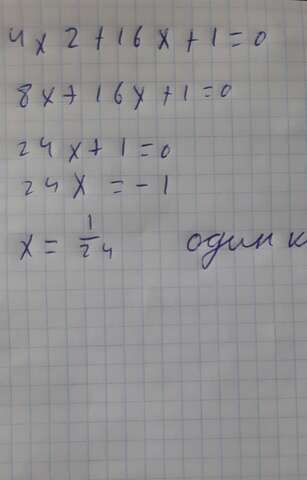 4x2+16x+1=0
8x+16x+1=0
24x+1=0
24x=-1
x=1/24 один к